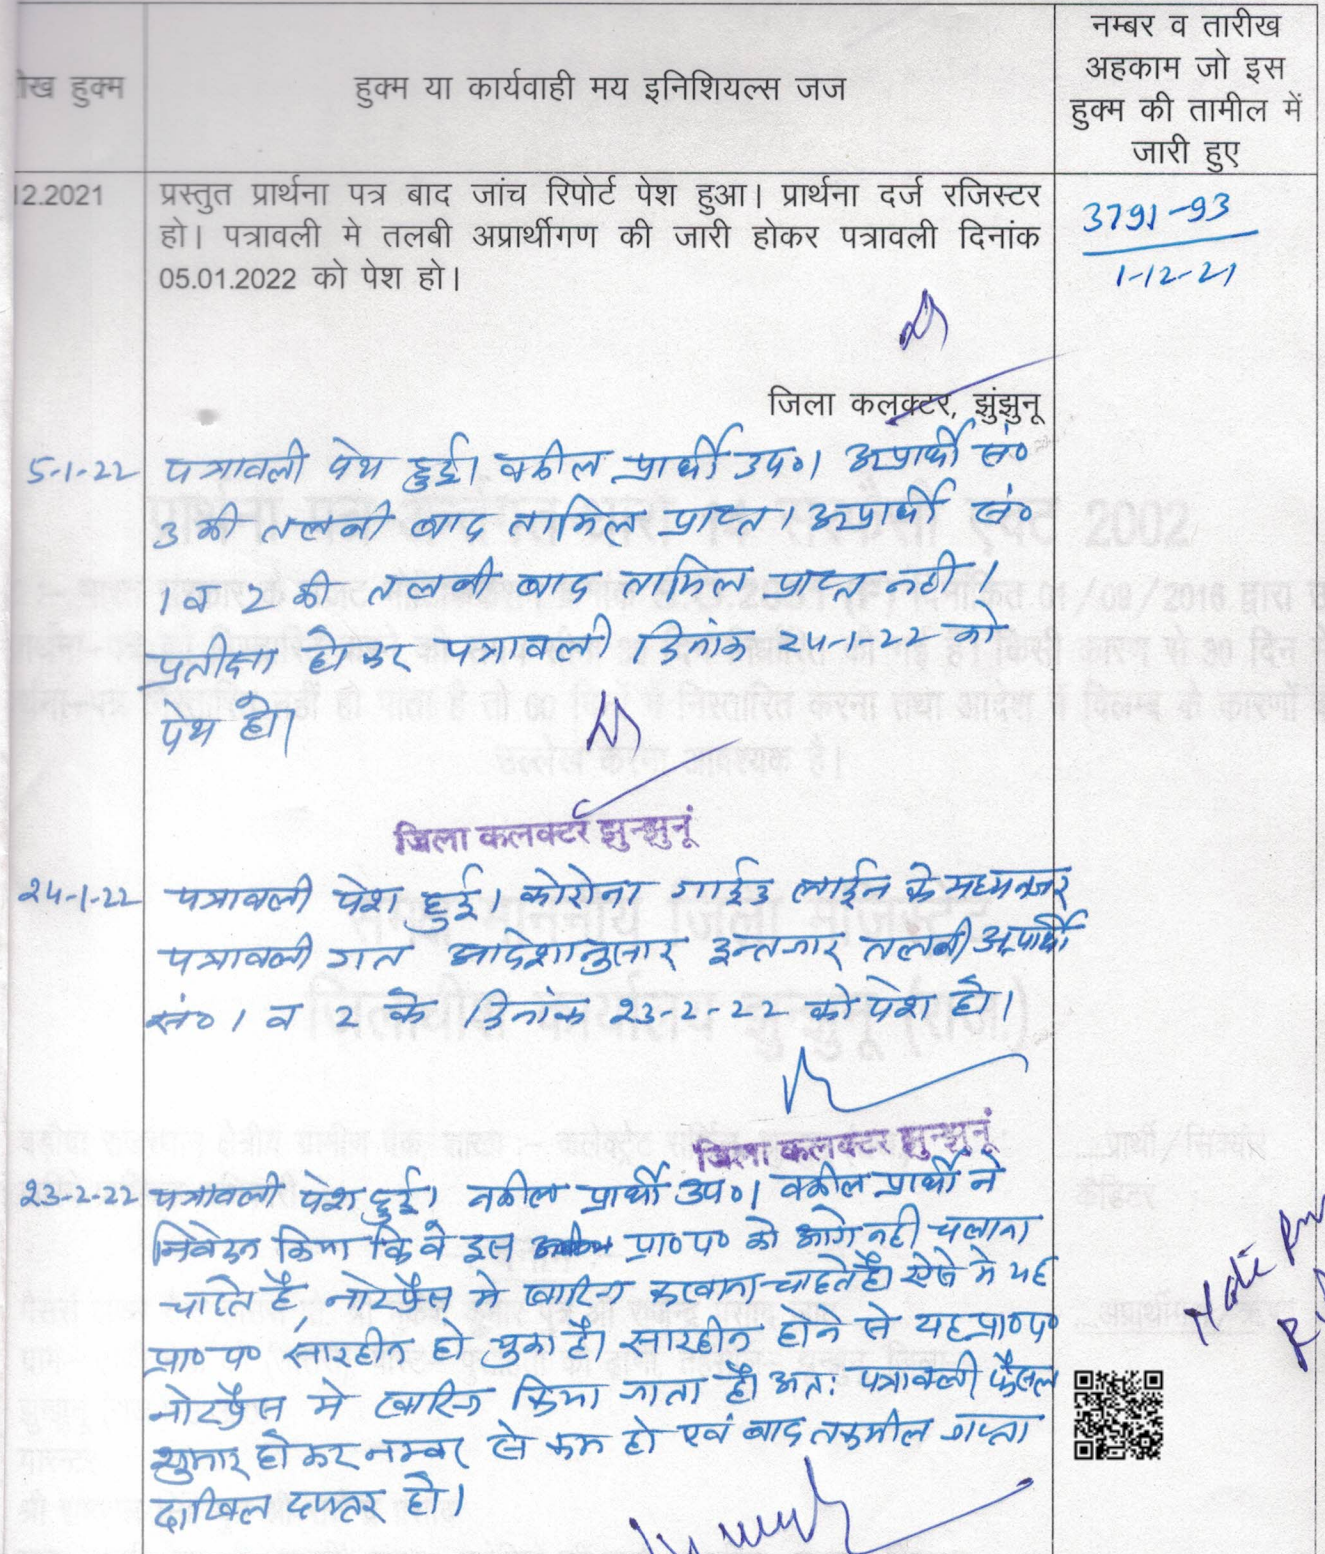 हुक्म
हुक्म या कार्यवाही मय इनिशियल्स जज
नम्बर व तारीख
अहकाम जो इस
हुक्म की तामील में
जारी हुए
12.2021
प्रस्तुत प्रार्थना पत्र बाद जांच रिपोर्ट पेश हुआ। प्रार्थना दर्ज रजिस्टर
हो। पत्रावली मे तलबी अप्रार्थीगण की जारी होकर पत्रावली दिनांक
05.01.2022 को पेश हो।
3791-93
1-12-21
जिला कलक्टर, झुंझुनू
5-1-22 पत्रावली पेश हुई। वकील प्रार्थी उप०। अप्रार्थी सं०
3 की तलबी बाद तामिल प्राप्त। अप्रार्थी सं०
1 व 2 की तलबी बाद तामिल प्राप्त नही।
प्रतीक्षा होकर पत्रावली दिनांक 24-1-22 को
पेश हो।
जिला कलक्टर झुन्झुनूं
24-1-22 पत्रावली पेश हुई। कोरोना गाईड लाईन के मध्यनजर
पत्रावली गत आदेशानुसार इन्तजार तलबी अप्रार्थी
सं० 1 व 2 के दिनांक 23-2-22 को पेश हो।
जिला कलक्टर झुन्झुनूं
23-2-22 पत्रावली पेश हुई। वकील प्रार्थी उप०। वकील प्रार्थी ने
निवेदन किया कि वे इस प्रा०प० को आगे नही चलाना
चाहते है, नोटप्रैस मे खारिज करवाना चाहते है। ऐसे मे यह
प्रा० प० सारहीन हो चुका है। सारहीन होने से यह प्रा०प०
नोटप्रैस मे खारिज किया जाता है। अतः पत्रावली फैसल
शुमार होकर नम्बर से कम हो एवं बाद तकमील जाप्ता
दाखिल दफ्तर हो।